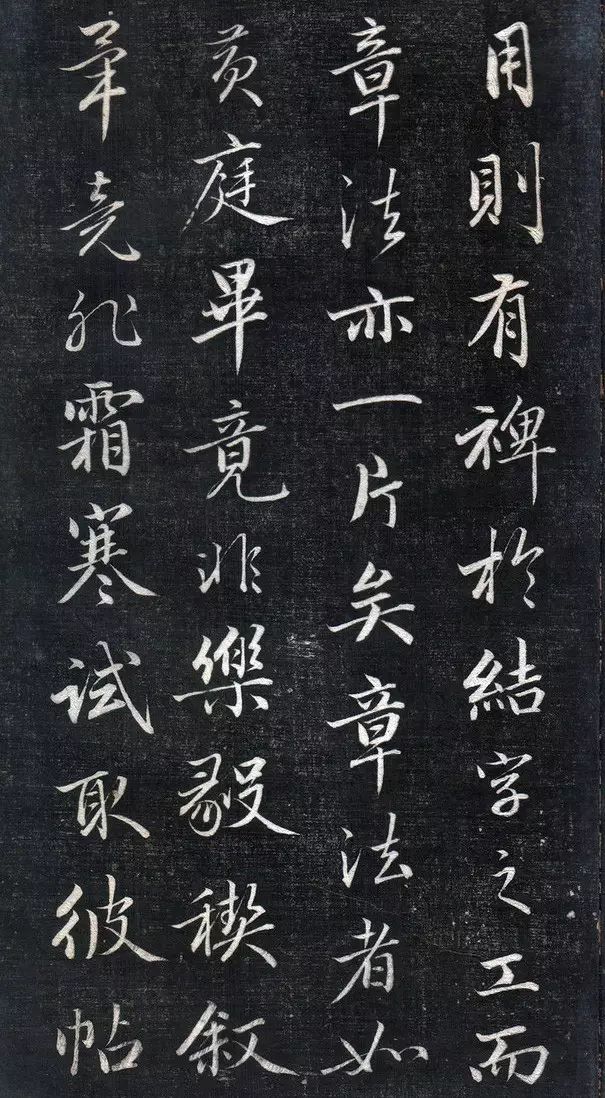 用則有裨於結字之工而
章法亦一片矣章法者如
黃庭畢竟非樂毅稧叙
畢竟非霜寒試取彼帖